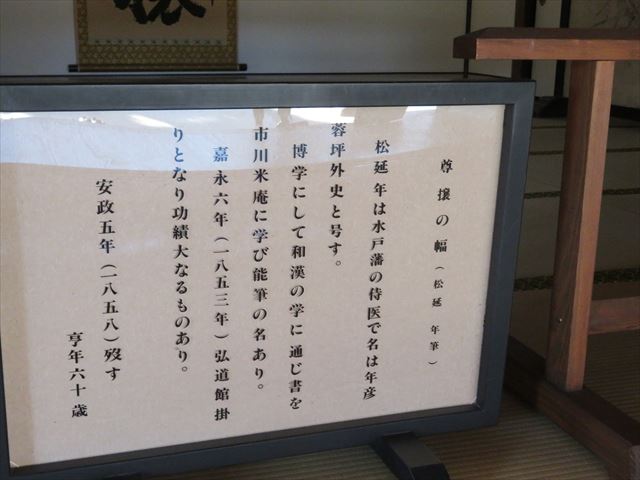 尊攘の幅（松延 年筆）
松延年は水戸藩の侍医で名は年彦
蓉坪外史と号す。
博学にして和漢の学に通じ書を
市川米庵に学び能筆の名あり。
嘉永六年（一八五三年）弘道館掛
りとなり功績大なるものあり。
安政五年（一八五八）歿す
亨年六十歳